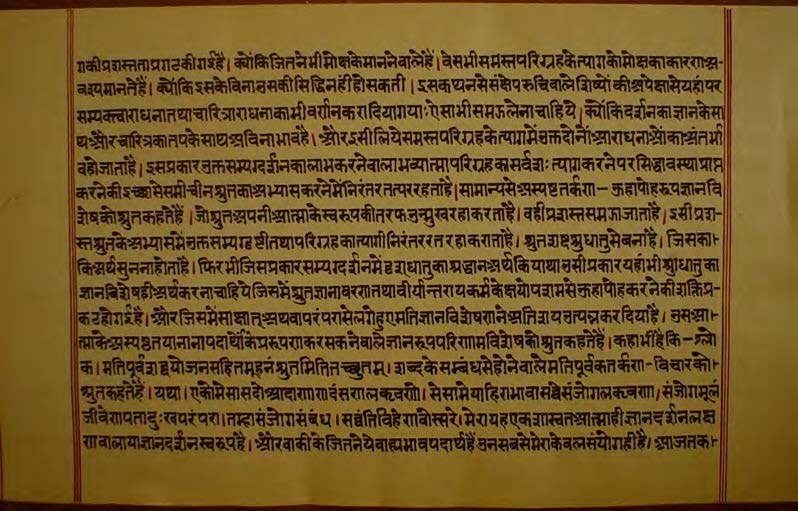 गकी प्रशस्तता प्रगट की गई है। क्योंकि जितने भी मोक्ष के मानने वाले हैं। वे सभी समस्त परिग्रह के त्याग को मोक्ष का कारण अ-
वश्य मानते हैं। क्योंकि इसके विना उसकी सिद्धि नहीं हो सकती। इस कथन से संक्षेप रुचिवाले शिष्यों की अपेक्षा से यहां पर
सम्यक्त्वाराधना तथा चारित्राराधना का भी वर्णन करादिया गया। ऐसा भी समझ लेना चाहिये। क्योंकि दर्शन का ज्ञान के सा-
थ और चारित्र का तप के साथ अविनाभाव है। और इसीलिये समस्त परिग्रह के त्याग में उक्त दोनों आराधनाओं का अंतर्भा-
व हो जाता है। इस प्रकार उक्त सम्यग्दर्शन का लाभ करने वाला भव्यात्मा परिग्रह का सर्वशः त्याग करने पर सिद्धावस्था प्राप्त
करने की इच्छा से समीचीन श्रुत का अभ्यास करने में निरंतर तत्पर रहता है। सामान्य से अस्पष्ट तर्कणा - ऊहापोह रूप ज्ञान वि-
शेष को श्रुत कहते हैं। जो श्रुत अपनी आत्मा के स्वरूप की तरफ उन्मुख रहा करता है। वही प्रशस्त समझा जाता है। इसी प्रश-
स्त श्रुत के अभ्यास में उक्त सम्यग्दृष्टी तथा परिग्रह का त्यागी निरंतर रत रहा करता है। श्रुत शब्द श्रु धातु से बना है। जिसका-
कि अर्थ सुनना होता है। फिर भी जिस प्रकार सम्यग्दर्शन में दृश धातु का श्रद्धान अर्थ किया था उसी प्रकार यहां भी श्रु धातु का
ज्ञान विशेष ही अर्थ करना चाहिये जिसमें श्रुत ज्ञानावरण तथा वीर्यान्तराय कर्म के क्षयोपशम से ऊहापोह करने की शक्ति प्र-
कट हो गई है। और जिसमें साक्षात् अथवा परंपरा से लगे हुए मतिज्ञान विशेषण ने अतिशय उत्पन्न कर दिया है। उस आ-
त्मा के अस्पष्टतया नाना पदार्थों के प्ररूपण कर सकने वाले ज्ञानरूप परिणाम विशेष को श्रुत कहते हैं। कहा भी है कि - श्लो-
क। मतिपूर्वं शब्दयोजनसहितमूहनं श्रुतमिति तच्छ्रुतम्। शब्द के संबंध से होने वाले मतिपूर्वक तर्कण - विचार को
श्रुत कहते हैं। यथा। एको मे सासदो आदा णाणदंसणलक्खणो। सेसा मे बाहिरा भावा सव्वे संजोगलक्खणा। संजोगमूलं
जीवेण पत्ता दुःखपरंपरा। तम्हा संजोगसंबंधं। सव्वं तिविहेण वोसरे। मेरा यह एक शास्वत आत्मा ही ज्ञान दर्शन लक्ष-
णवाला या ज्ञान दर्शन स्वरूप है। और बाकी के जितने ये बाह्य भाव पदार्थ हैं उन सब से मेरा केवल संयोग ही है। आज तक